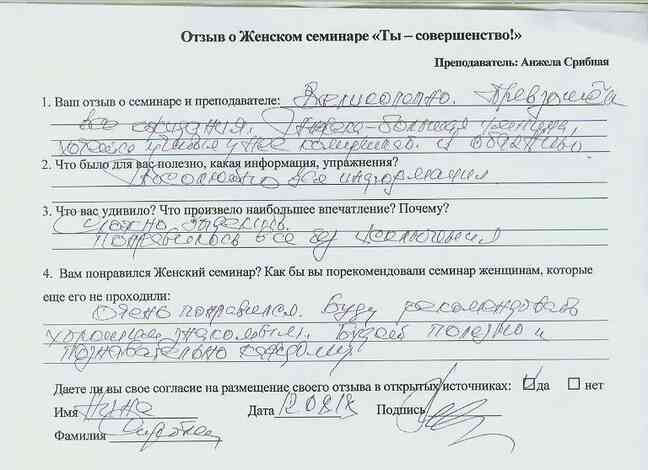 Отзыв о Женском семинаре «Ты – совершенство!»
Преподаватель: Анжела Срибная
1. Ваш отзыв о семинаре и преподавателе: Великолепно. Превзошёл
все ожидания. Анжела - большая умница,
2. Что было для вас полезно, какая информация, упражнения?
Абсолютно вся информация
3. Что вас удивило? Что произвело наибольшее впечатление? Почему?
Сложно выделить.
Понравилось все без исключения
4. Вам понравился Женский семинар? Как бы вы порекомендовали семинар женщинам, которые
еще его не проходили:
Очень понравился. Буду рекомендовать
знакомым. Будет полезно и
познавательно каждому
Даете ли вы свое согласие на размещение своего отзыва в открытых источниках: да нет
Имя Дата Подпись
Фамилия